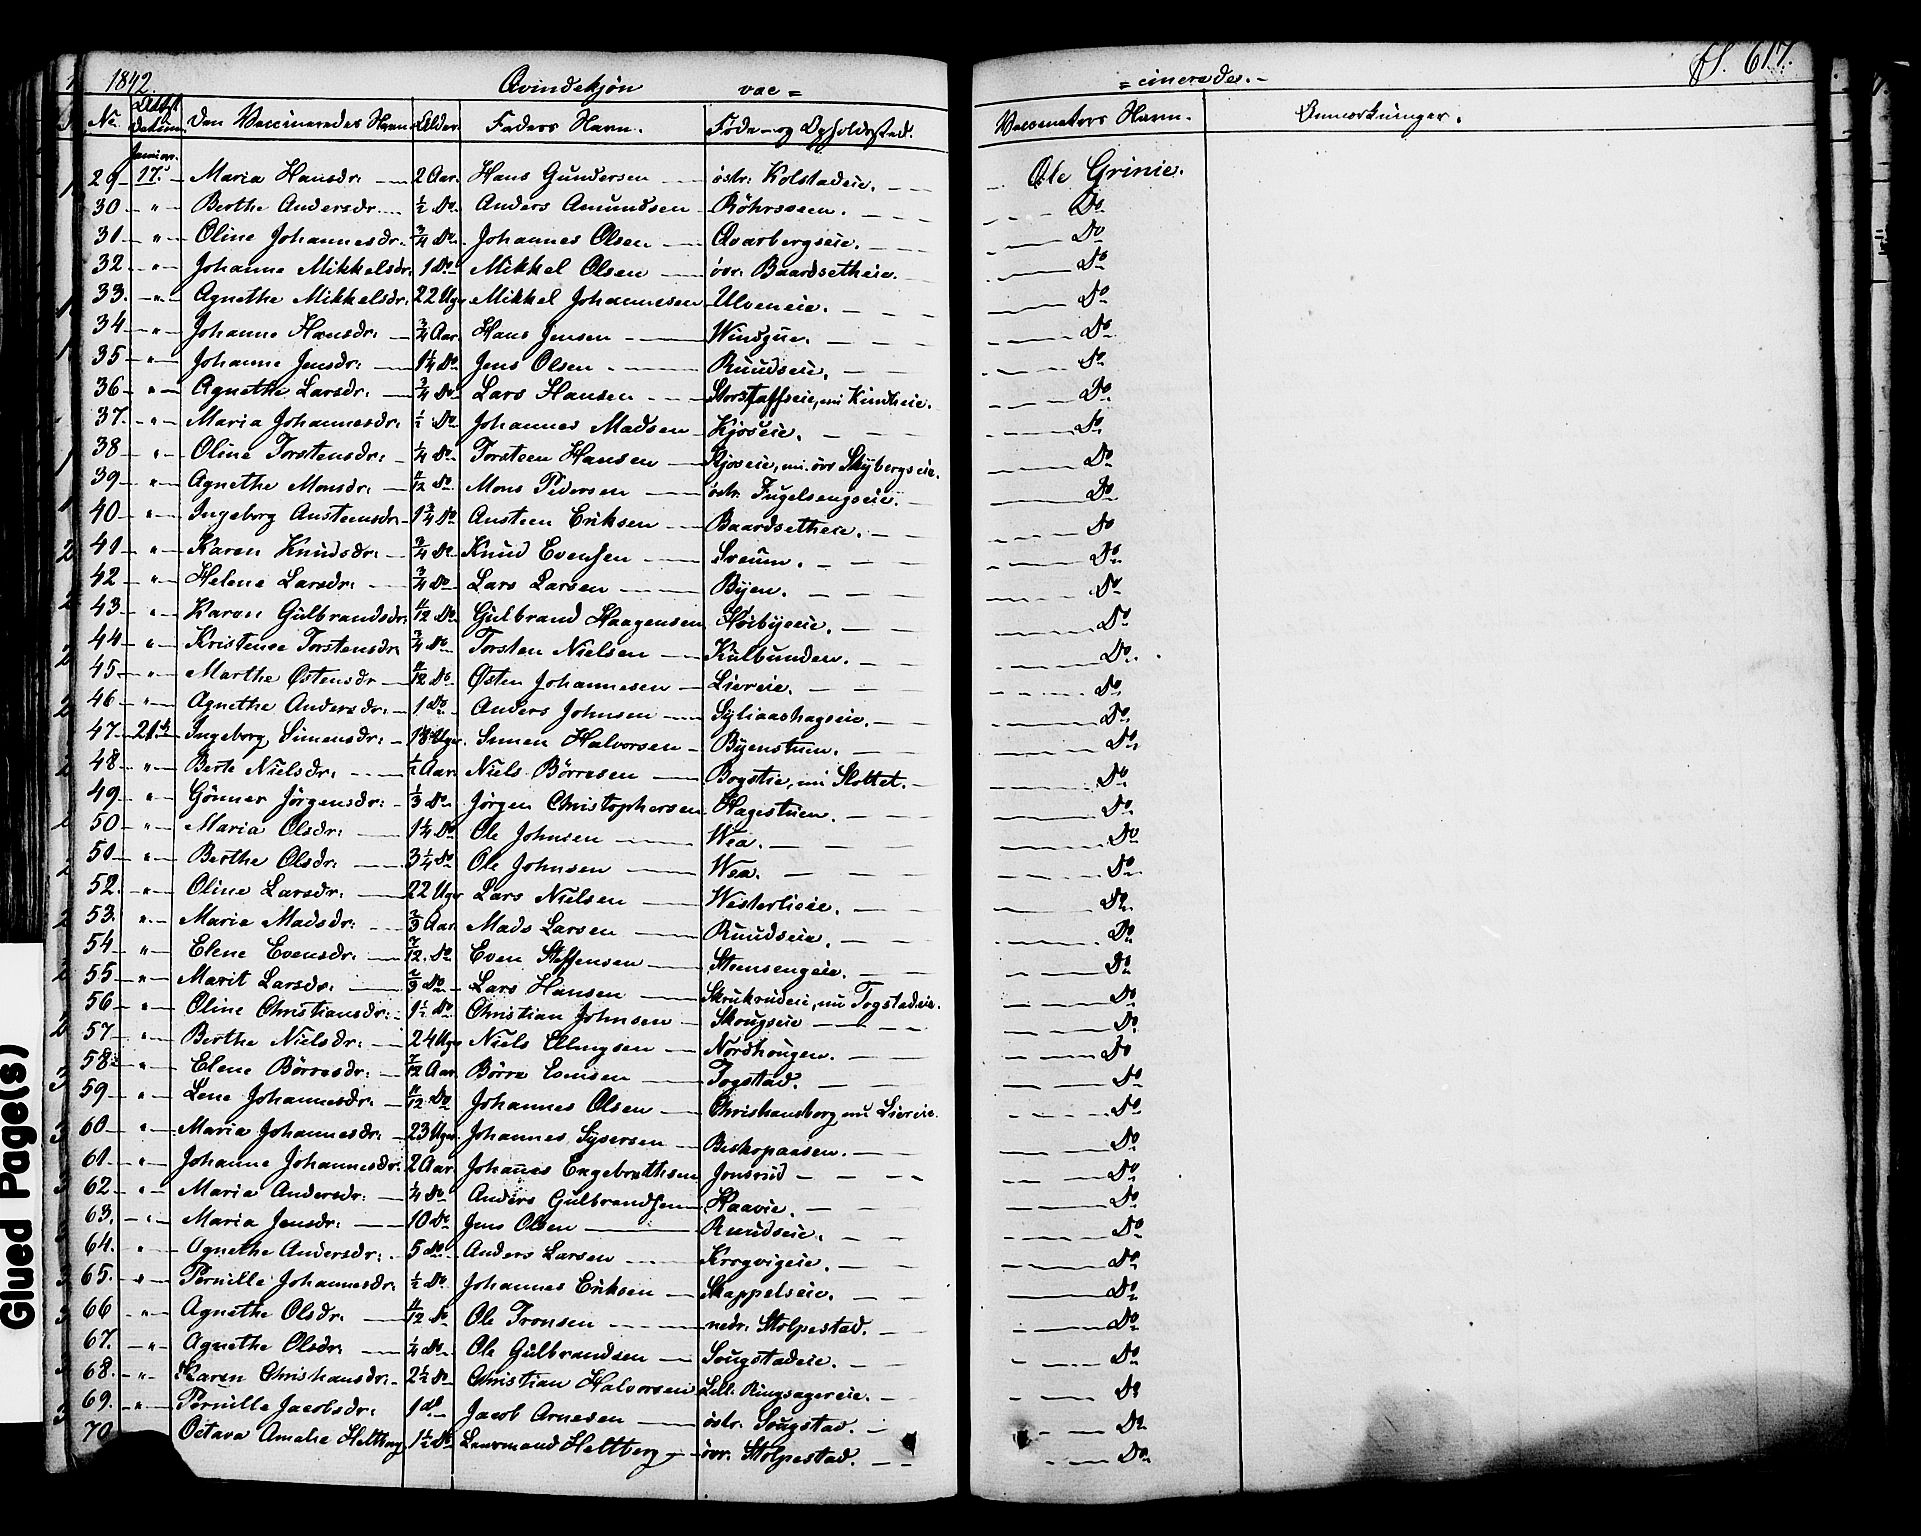 1842. Qvindekjøn vac = = cinerades. - fl. 617.
No. Datum. Den Vaccineredes Navn. Alder. Faders Navn. Føde- og Opholdssted. Vaccinators Navn. Anmærkninger.
29 Junior. 17. Maria Hansdr: 2 Aar. Hans Gundersen östr: Kolstadeie. Ole Grinie.
30 " Berthe Andersdr. ½ Do Anders Amundsen Röhrsveen. Do
31 " Oline Johannesdr. ¾ Do Johannes Olsen Qvarbergseie. Do
32 " Johanne Mikkelsdr. 1 Do Mikkel Olsen övr: Baardsetheie. Do
33. " Agnethe Mikkelsdr. 22 Uger Mikkel Johannesen Ulveneie. Do
34 " Johanne Hansdr: ¾ Aar. Hans Jensen Windjue. Do
35 " Johanne Jensdr: 1¼ Do Jens Olsen Ruudseie. Do
36 " Agnethe Larsdr. ¾ Do Lars Hansen Storstaffseie, nu Kindlieie. Do
37. " Maria Johannesdr: ½ Do Johannes Madsen Kjoseie. Do
38 " Oline Torstensdr: ¼ Do Torsteen Hansen Kjoseie, nu övr Skybergseie. Do
39 " Agnethe Monsdr. 11/12 Do Mons Pedersen östr. Fuglesengseie. Do
40 " Ingeborg Austensdr: 1¾ Do Austeen Eriksen Baardsetheie. Do
41 " Karen Knudsdr: ¾ Do Knud Evensen Sveum. Do
42 " Helene Larsdr: ¾ Do Lars Larsen Byen. Do
43 " Karen Gulbrandsdr: 11/12 Do Gulbrand Haagensen Høibyeie. Do
44 " Kristense Torstensdr ¾ Do Torsten Nielsen Kulbunden. Do
45 " Marthe Østensdr 11/12 Do Østen Johannesen Liereie. Do
46 " Agnethe Andersdr: 1 Do Anders Johnsen Syliaashagseie. Do
47 21de Ingeborg Simensdr: 18 Uger. Simen Halvorsen Byenstuen. Do
48 " Berte Nielsdr: ½ Aar Niels Börresen Bogstie, nu Slottet. Do
49 " Gönner Jörgensdr: ⅓ Do Jörgen Christophersen Hagestuen. Do
50 " Maria Olsdr: 1¼ Do Ole Johnsen Wea. Do
51 " Berthe Olsdr: 3¼ Do Ole Johnsen Wea. Do
52. " Oline Larsdr: 22 Uger Lars Nielsen Westerlieie. Do
53. " Marie Madsdr: ⅔ Aar Mads Larsen Ruudseie. Do
54 " Elene Evensdr: 7/12 Do Even Steffensen Steensengeie. Do
55 " Marit Larsdr. ⅔ Do Lars Hansen Skrukrudeie, nu Togstadeie. Do
56 " Oline Christiansdr: 1½ Do Christian Johnsen Skougseie Do
57 " Berthe Nielsdr: 24 Uger Niels Elingsen Nordhougen. Do
58 " Elene Börresdr: 7/12 Aar Börre Evensen Togstad. Do
59 " Lene Johannesdr. 11/12 Do Johannes Olsen Christiansborg nu Liereie. Do
60 " Maria Johannesdr: 23 Uger Johannes Syversen Beskopaasen. Do
61 " Johanne Johannesdr. 2 Aar. Johanes Engebrethsen Jonsrud Do
62 " Maria Andersdr: ¼ Do Anders Gulbrandsen Haavie. Do
63. " Maria Jensdr: 10 Do Jens Olsen Ruudseie. Do
64. " Agnethe Andersdr: 5 Do Anders Larsen Krogvigeie. Do
65. " Pernille Johannesdr: ½ Do Johannes Eriksen Skappelseie. Do
66 " Agnethe Olsdr. 11/12 Do Ole Tronsen nedr: Stolpestad. Do
67. " Agnethe Olsdr: ¼ Do Ole Gulbrandsen Sougstadeie. Do
68. " Karen Christiansdr: 2½ Do Christian Halvorsen Lill. Ringsagereie. Do
69. " Pernille Jacobsdr: 1 Do Jacob Arnesen östr: Sougstad. Do
70 Octava Amalie Heltberg 1½ Do Lensmand Heltberg övr: Stolpestad. Do
Glued Page(s)